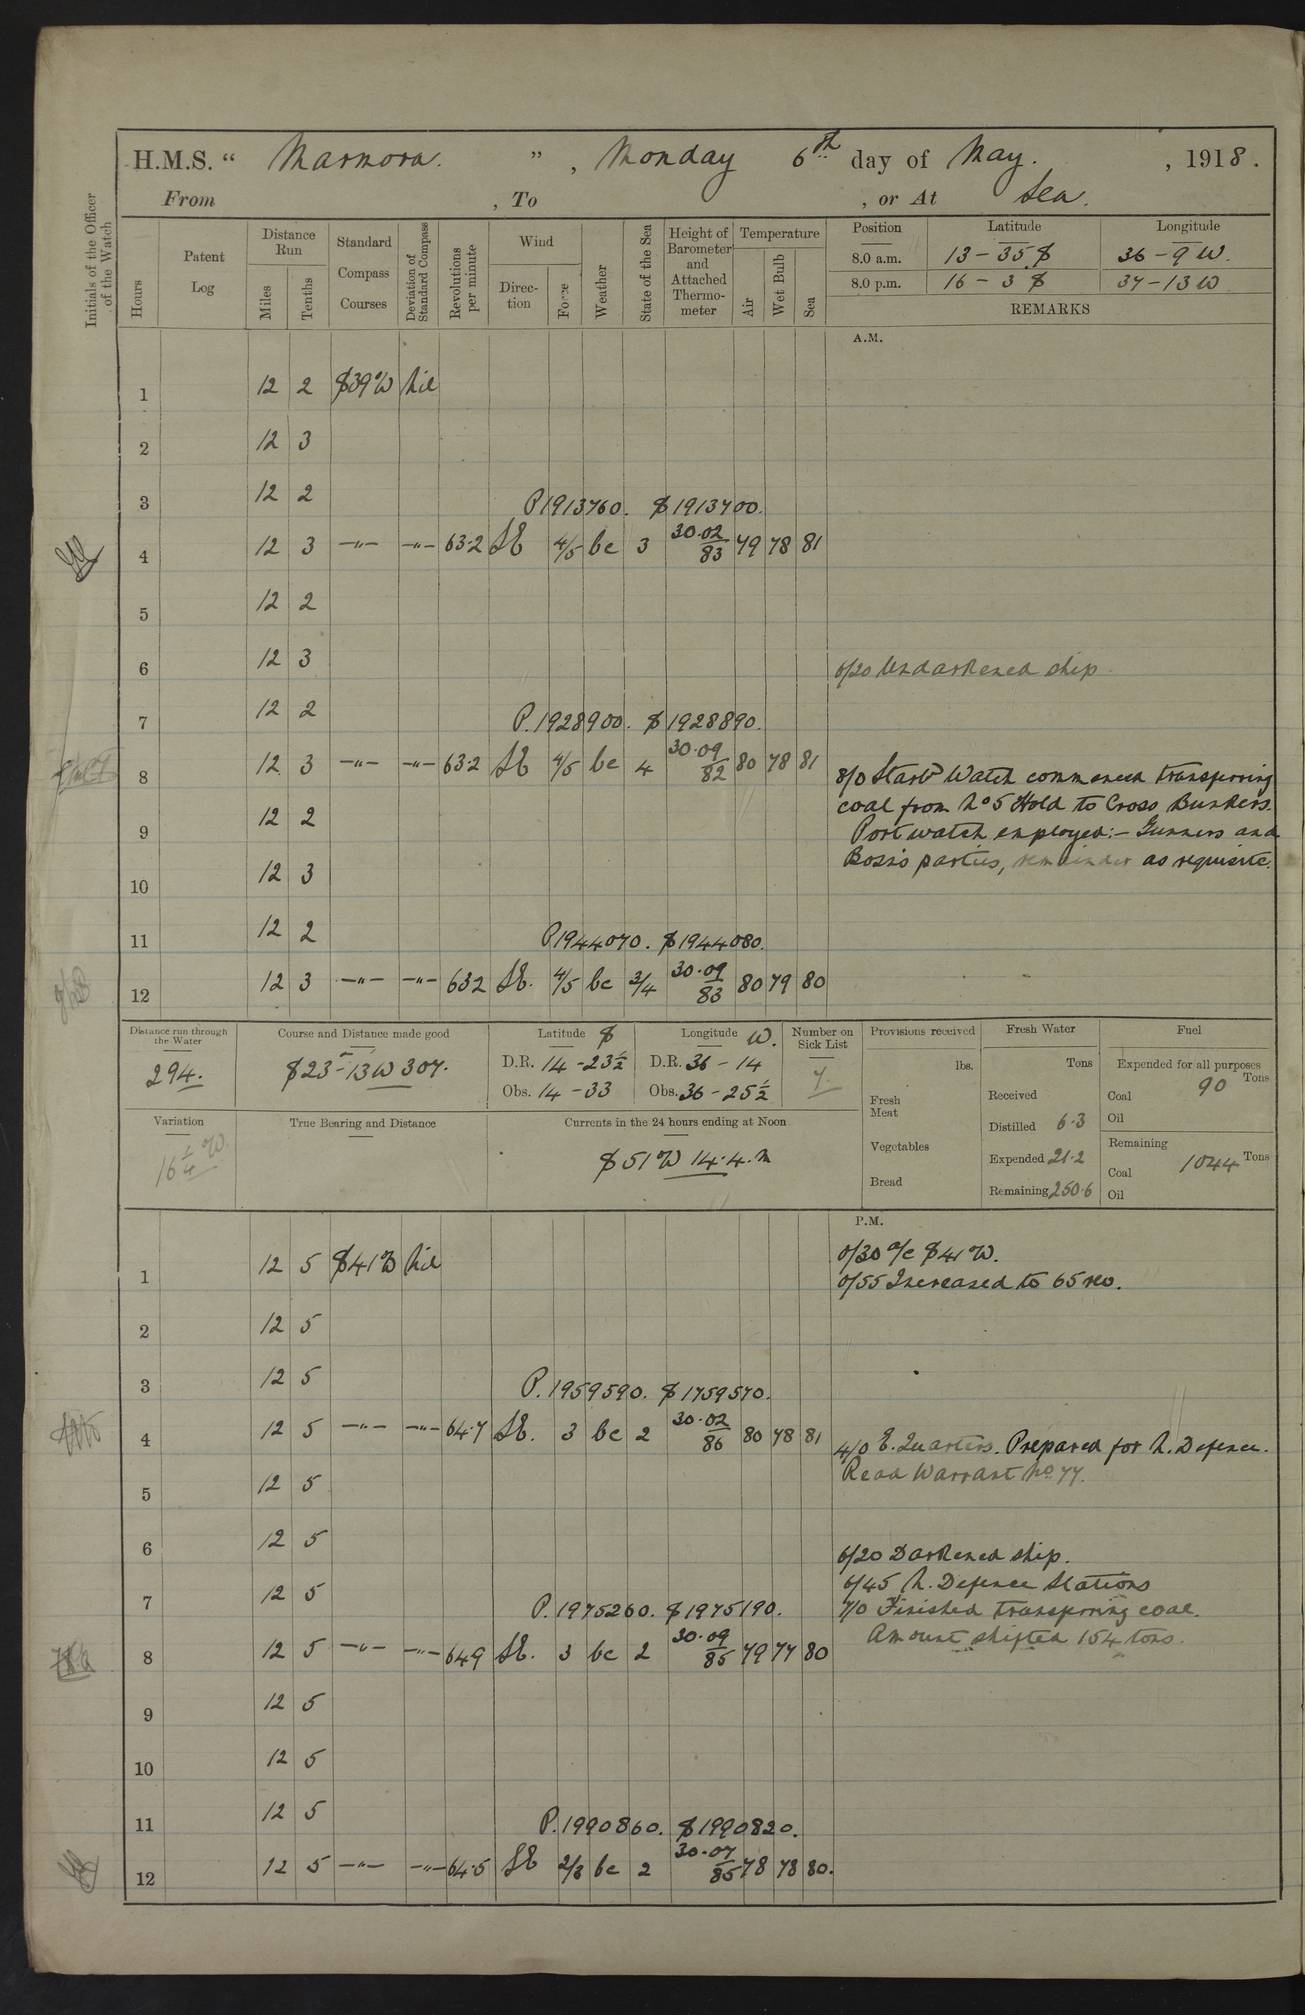 H.M.S. “ Marmora. ” , Monday 6th day of May. , 1918.
From , To , or At Sea.
Initials of the Officer of the Watch
Hours
Patent Log
Distance Run
Miles
Tenths
Standard Compass Courses
Deviation of Standard Compass
Revolutions per minute
Wind
Direction
Force
Weather
State of the Sea
Height of Barometer and Attached Thermometer
Temperature
Air
Wet Bulb
Sea
Position Latitude Longitude
8.0 a.m. 13 – 35 S 36 – 9 W.
8.0 p.m. 16 – 3 S 37 – 13 W
REMARKS
A.M.
1 12 2 S39W Nil
2 12 3
3 12 2 P1913760. S1913700.
4 12 3 –"– –"– 63·2 SE 4/5 bc 3 30·02/83 79 78 81
5 12 2
6 12 3 6/20 Undarkened ship
7 12 2 P.1928900. S1928890.
8 12 3 –"– –"– 63·2 SE 4/5 bc 4 30·09/82 80 78 81
8/0 Starbd Watch commenced transferring
coal from No 5 Hold to Cross Bunkers.
9 12 2 Port watch employed:– Gunners and
Bosns parties, remainder as requisite.
10 12 3
11 12 2 P1944070. S1944080.
12 12 3 –"– –"– 632 SE. 4/5 bc 3/4 30·09/83 80 79 80
Distance run through the Water
294.
Course and Distance made good
S23–13W 307.
Latitude S
D.R. 14 – 23½
Obs. 14 – 33
Longitude W.
D.R. 36 – 14
Obs. 36 – 25½
Number on Sick List
7.
Provisions received
lbs.
Fresh Meat
Vegetables
Bread
Fresh Water
Tons
Received
Distilled 6·3
Expended 21·2
Remaining 250·6
Fuel
Expended for all purposes
Tons
Coal 90
Oil
Remaining
Coal 1044 Tons
Oil
Variation
16¼ W.
True Bearing and Distance
Currents in the 24 hours ending at Noon
S51W 14·4·m
P.M.
0/30 a/c S41W.
1 12 5 S41W Nil 0/55 Increased to 65 rev.
2 12 5
3 12 5 P.1959590. S1759570.
4 12 5 –"– –"– 64·7 SE. 3 bc 2 30·02/86 80 78 81
4/0 E. Quarters. Prepared for N. Defence.
Read Warrant No 77.
5 12 5
6 12 5 6/20 Darkened ship.
6/45 N. Defence Stations
7 12 5 P.1975260. S1975190. 7/0 Finished transferring coal.
Amount shifted 154 tons.
8 12 5 –"– –"– 649 SE. 3 bc 2 30·09/85 79 77 80
9 12 5
10 12 5
11 12 5 P.1990860. S1990820.
12 12 5 –"– –"– 64·5 SE 2/3 bc 2 30·07/85 78 78 80.